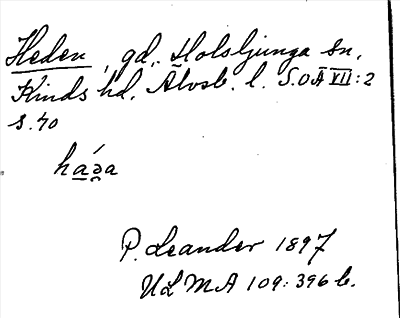 Heden, gd, Holsljunga sn,
Kinds hd, Älvsb. l. S.O.Ä VII:2
s. 40
háə̯a
P. Leander 1897
ULMA 109:396 b.